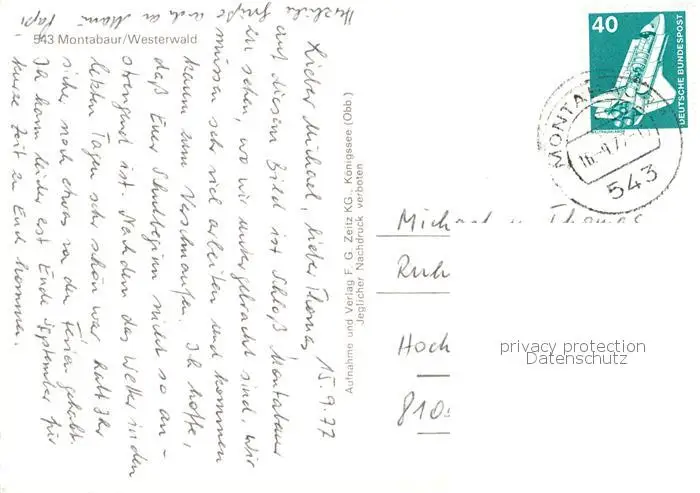 543 Montabaur/Westerwald
15.9.77
Lieber Michael, lieber Thomas,
auf diesem Bild ist Schloß Montabaur
zu sehen, wo wir untergebracht sind. Wir
müssen sehr viel arbeiten und kommen
kaum zum Verschnaufen. Ich hoffe,
daß Euer Schulbeginn nicht so an-
strengend ist. Nachdem das Wetter in den
letzten Tagen sehr schön war, habt Ihr
sicher noch etwas von den Ferien gehabt.
Ich kann leider erst Ende September für
kurze Zeit zu Euch kommen.
Herzliche Grüße auch an Mami Papi
Aufnahme und Verlag F. G. Zeitz KG., Königssee (Obb)
Jeglicher Nachdruck verboten
40
DEUTSCHE BUNDESPOST
543
Michael u. Thomas
Ruh
Hoch
810
privacy protection
Datenschutz